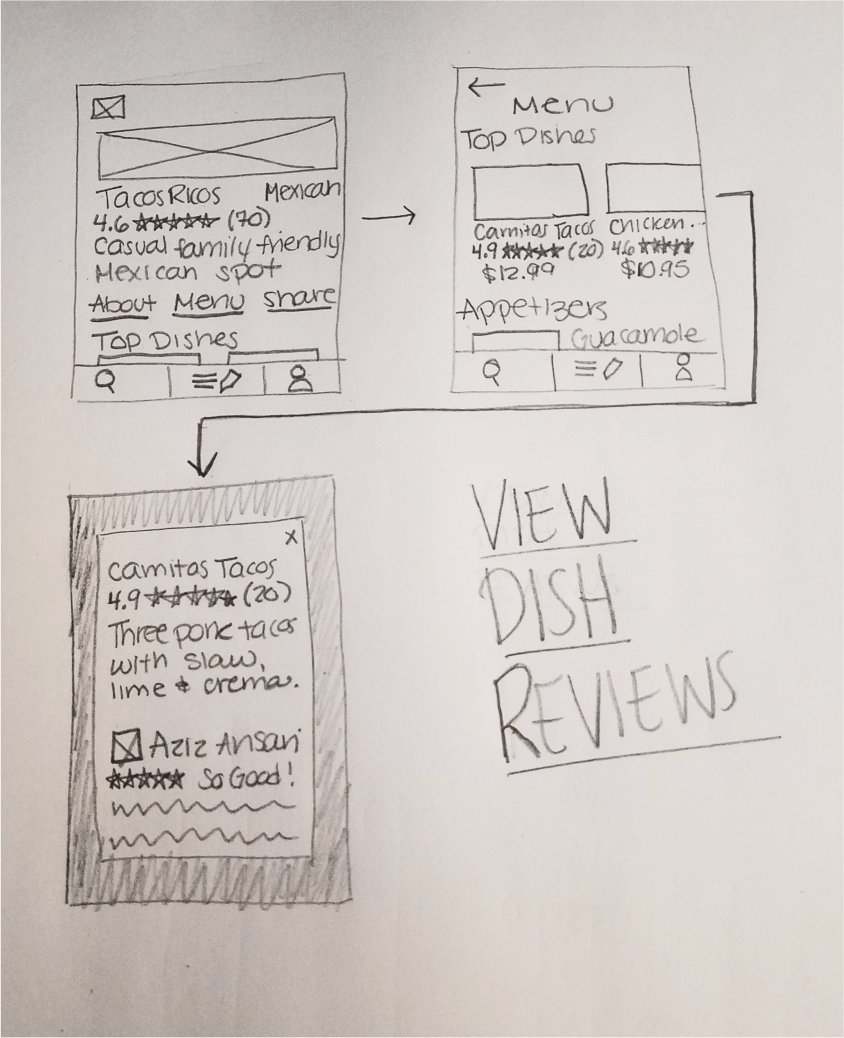 Tacos Ricos Mexican
4.6 ★★★★★ (70)
Casual family friendly
Mexican spot
About Menu share
Top Dishes
←
Menu
Top Dishes
Carnitas Tacos Chicken...
4.9 ★★★★★ (20) 4.6 ★★★★★
$12.99 $10.95
Appetizers
Guacamole
x
Carnitas Tacos
4.9 ★★★★★ (20)
Three pork tacos
with slaw,
lime & crema.
Aziz Ansari
★★★★★ So Good!
VIEW
DISH
REVIEWS